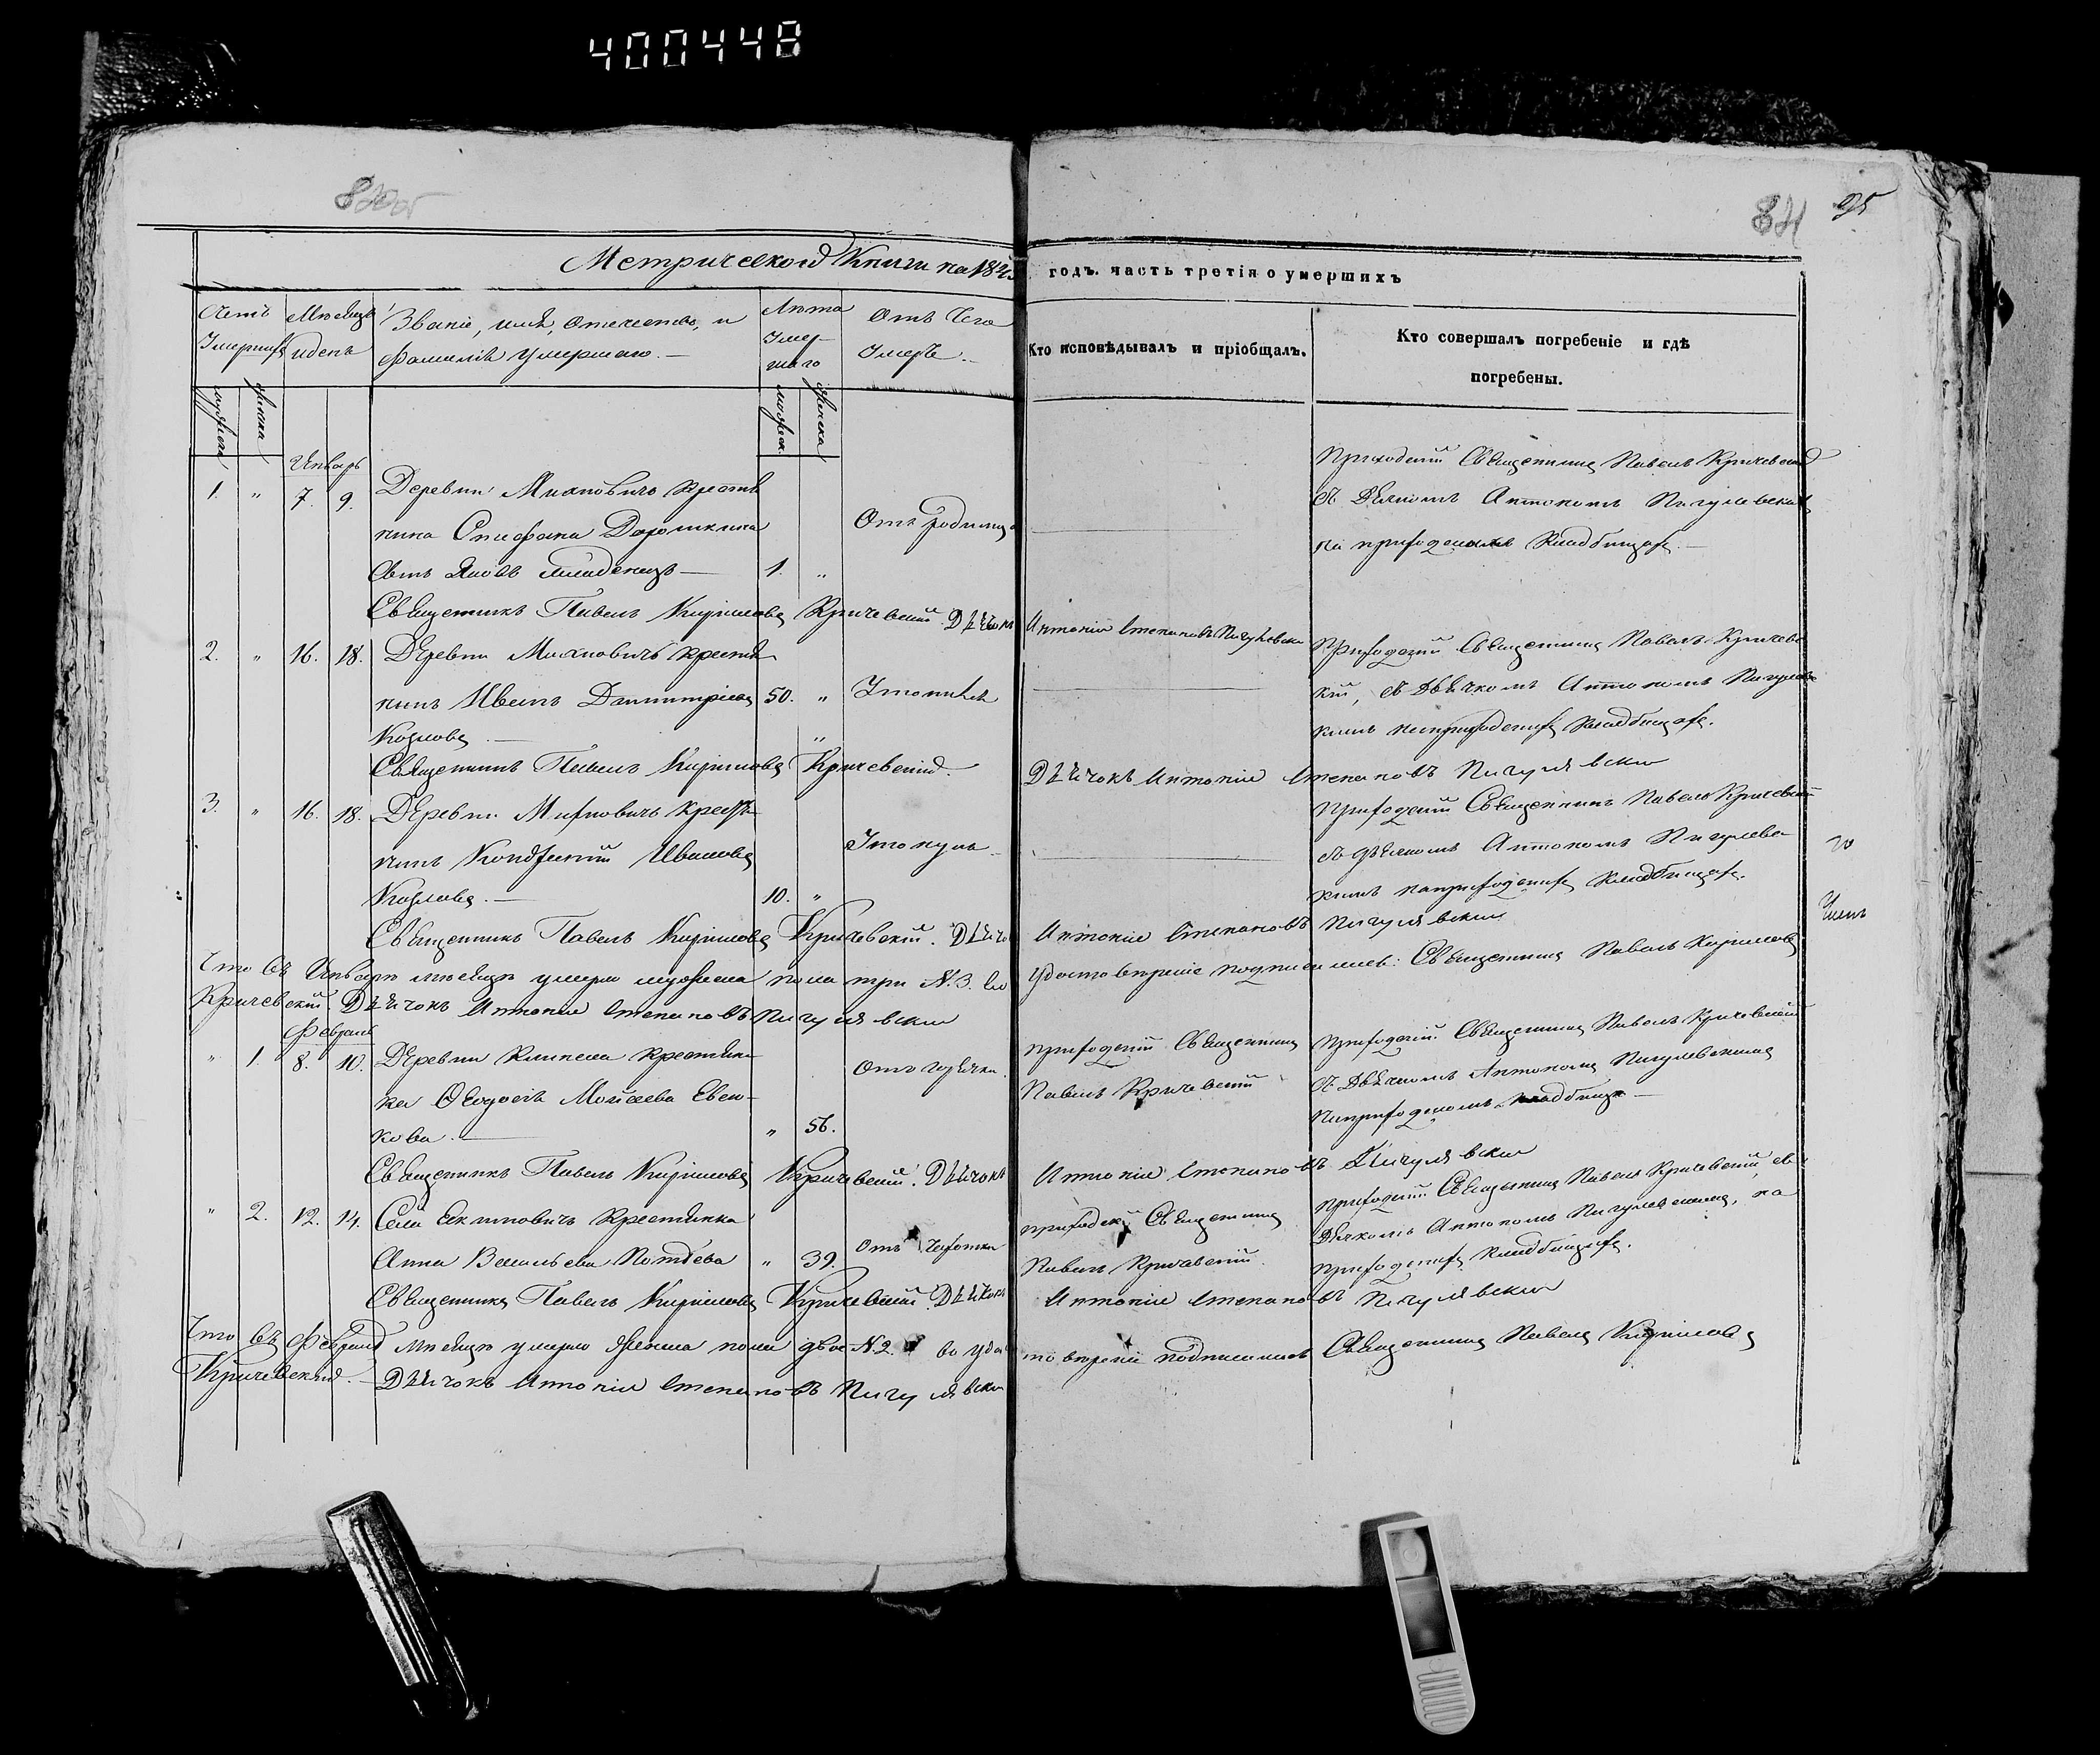 400448
841
95
Метрической Книги на 184
годъ. часть третія о умершихъ
Счетъ Умершихъ
Мѣсяцъ и день
Званіе, имя, отечество, и фамилія умершаго.
Лѣта Умершаго
Отъ Чего Умеръ.
Кто исповѣдывалъ и пріобщалъ.
Кто совершалъ погребеніе и гдѣ
погребены.
мужеска
женска
мужеск.
женска
Январь
1. " 7. 9. Деревни Михновичъ крестья
нина Стефана
сынъ Яковъ младенецъ 1. "
Отъ родимца
Приходскій Священникъ Павелъ Кричевскій
съ Дьячкомъ Антономъ Пигулевскимъ
на приходскомъ кладбищѣ.
Священникъ Павелъ Кирилловъ Кричевскій. Дьячокъ Антоній Степановъ Пигулевски
2. " 16. 18. Деревни Михновичъ крестья
нинъ Иванъ Дмитріевъ 50. " Утопился
Козловъ.
Приходскій Священникъ Павелъ Кричевс
кій, съ Дьячкомъ Антономъ Пигулевс
кимъ на приходскихъ кладбищахъ.
Священникъ Павелъ Кирилловъ Кричевскій.
Дьячокъ Антоній Степановъ Пигулявски
3. " 16. 18. Деревни Михновичъ крестья
нинъ Кондратій Ивановъ Утонулъ
Козловъ. 10. "
Приходскій Священникъ Павелъ Кричевскій
съ дьячкомъ Антономъ Пигулевс
кимъ на приходскихъ кладбищахъ.
Священникъ Павелъ Кирилловъ Кричевскій. Дьячокъ Антоніе Степановъ Пигулявски
Что въ Январѣ мѣсяцѣ умерло мужеска пола три N. 3. во удостовѣреніе подписались: Священникъ Павелъ Кирилловъ
Кричевскій. Дьячокъ Антоніе Степановъ Пигулявски
Февраль
" 1. 8. 10. Деревни крестьян
ка Ѳеодосія Моисеева Евсю-
кова. " 56.
Отъ горячки.
Приходскій Священникъ
Павелъ Кричевскій
Приходскій Священникъ Павелъ Кричевскій
съ Дьячкомъ Антономъ Пигулевскимъ
на приходскомъ кладбищѣ
Священникъ Павелъ Кирилловъ Кричевскій. Дьячокъ Антоніе Степановъ Пигулявски
" 2. 12. 14. Села крестьянка
Анна Васильева " 39. Отъ чахотки
Приходскій Священникъ
Павелъ Кричевскій.
Приходскій Священникъ Павелъ Кричевскій, съ
Дьячкомъ Антономъ Пигулевскимъ, на
приходскихъ кладбищахъ.
Священникъ Павелъ Кирилловъ Кричевскій. Дьячокъ Антоніе Степановъ Пигулявски
Что въ Февралѣ мѣсяцѣ умерло женска пола двое N. 2. во удостовѣреніе подписались Священникъ Павелъ Кирилловъ
Кричевскій. Дьячокъ Антоніе Степановъ Пигулявски